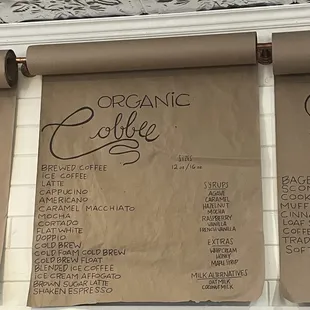 ORGANIC
Cobbee
12 oz / 16 oz
BREWED COFFEE
ICE COFFEE
LATTE
CAPPUCINO
AMERICANO
CARAMEL MACCHIATO
MOCHA
CORTADO
FLAT WHITE
DOPPIO
COLD BREW
COLD FOAM COLD BREW
COLD BREW FLOAT
BLENDED ICE COFFEE
ICE CREAM AFFOGATO
BROWN SUGAR LATTE
SHAKEN ESPRESSO
SYRUPS
AGAVE
CARAMEL
HAZELNUT
MOCHA
RASPBERRY
VANILLA
FRENCH VANILLA
EXTRAS
WHIP CREAM
HONEY
MAPLE SYRUP
MILK ALTERNATIVES
OAT MILK
COCONUT MILK
BAGE
SCON
COOK
MUFF
CINNA
LOAF
COFFE
TRAD
SOFT